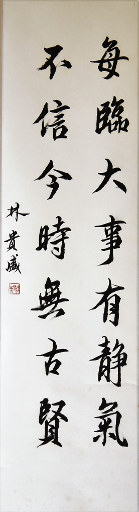 每臨大事有静氣
不信今時無古賢
林貴盛